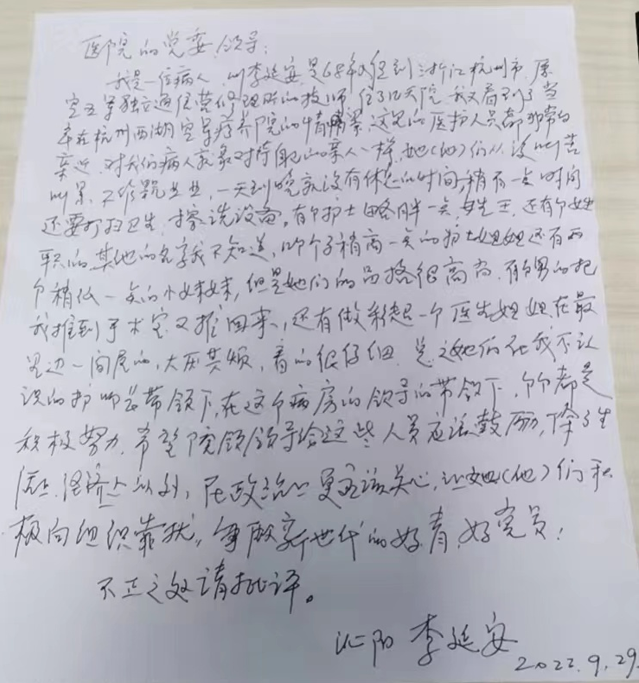 医院的党委、领导:
我是一位病人,叫李延安,是68年入伍到浙江杭州市,原
空五军独立通信营修理所的技师,住了几天院,我又看到了当
年在杭州西湖空军疗养院的情景,这里的医护人员都非常的
亲近,对我们病人就象对待自己的亲人一样,她(他)们从没叫苦
叫累,工作兢兢业业,一天到晚就没有休息的时间,稍有一点时间
还要打扫卫生,擦洗设备。有个护士略胖一点,姓王,还有个姓
耿的,其他的名字我不知道,个子稍高一点的护士姐姐还有两
个稍低一点的小妹妹,但是她们的品格很高尚,有个男的把
我推到手术室又推回来,还有做彩超一个医生姐姐在最
里边一间屋的,不厌其烦,看的很仔细,总之她们在我不认
识的护师长带领下,在这个病房的领导的带领下,个个都是
积极努力,希望院领导给这些人员应该鼓励,除了生
活上、经济上以外,在政治上更应该关心,让她(他)们积
极向组织靠拢,争取新世代的好青、好党员!
不正之处请批评。
沁阳 李延安
2022.9.29.